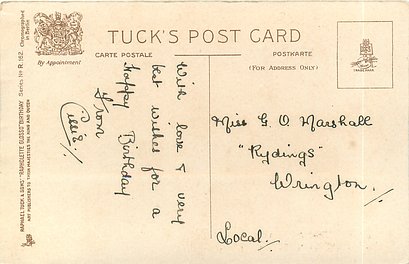 TUCK'S POST CARD
CARTE POSTALE
POSTKARTE
(FOR ADDRESS ONLY)
By Appointment
RAPHAEL TUCK & SONS' "RAPHOLETTE GLOSSO" BIRTHDAY
Series No R 162
ART PUBLISHERS TO THEIR MAJESTIES THE KING AND QUEEN
TRADE MARK
With love & very
best wishes for a
Happy Birthday
from
Miss G. O. Marshall
"Rydings"
Wrington.
Local.